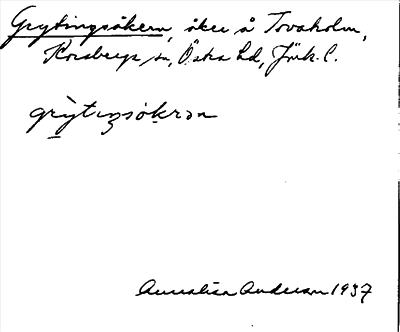 Grytingsåkern, åker å Tovaholm,
Korsberga sn, Östra hd, Jönk. l.
grỳtıŋsåkrən
Annalisa Anderson 1937